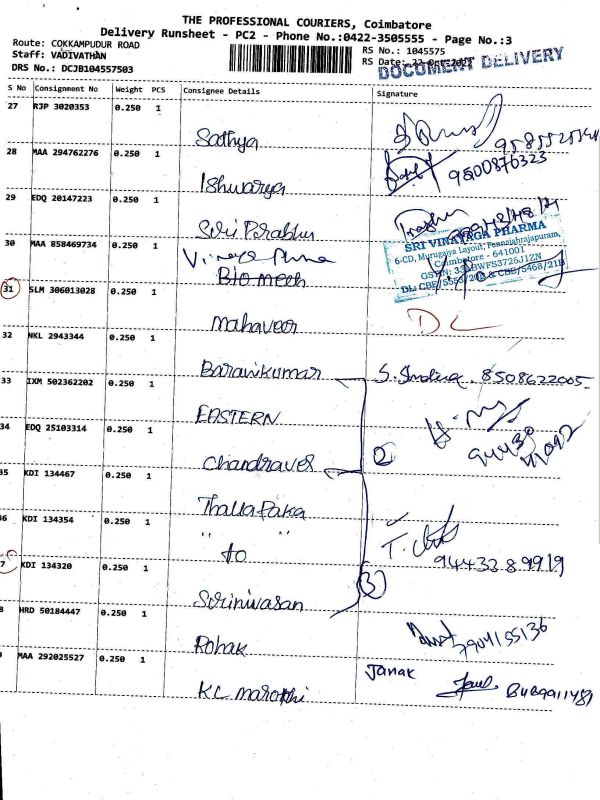 THE PROFESSIONAL COURIERS, Coimbatore
Delivery Runsheet - PC2 - Phone No.:0422-3505555 - Page No.:3
Route: COKKAMPUDUR ROAD
Staff: VADIVATHAN
DRS No.: DCJB104557503
RS No.: 1045575
RS Date: 22-Oct-202
DOCUMENT DELIVERY
S No Consignment No Weight PCS Consignee Details Signature
27 RJP 3020353 0.250 1
Sathya
28 MAA 294762276 0.250 1
9500876323
Ishwarya
29 EDQ 20147223 0.250 1
Siri Prabhu
30 MAA 858469734 0.250 1
Bio mech
SRI VINAYAGA PHARMA
6-CD, Murugaiya Layout, Ponnaiahrajapuram,
Coimbatore - 641001
31 SLM 306013028 0.250 1
Mahaveer
DC
32 NKL 2943344 0.250 1
Baranikumar
8508622005
33 IXM 502362202 0.250 1
EASTERN
34 EDQ 25103314 0.250 1
Chandravel
2
94430
35 KDI 134467 0.250 1
Thalla Paka
6 KDI 134354 0.250 1
" "
to
9443289919
7 KDI 134320 0.250 1
3
Sirinivasan
8 HRD 50184447 0.250 1
7904155136
Rohak
MAA 292025527 0.250 1
Janak
KC marothi